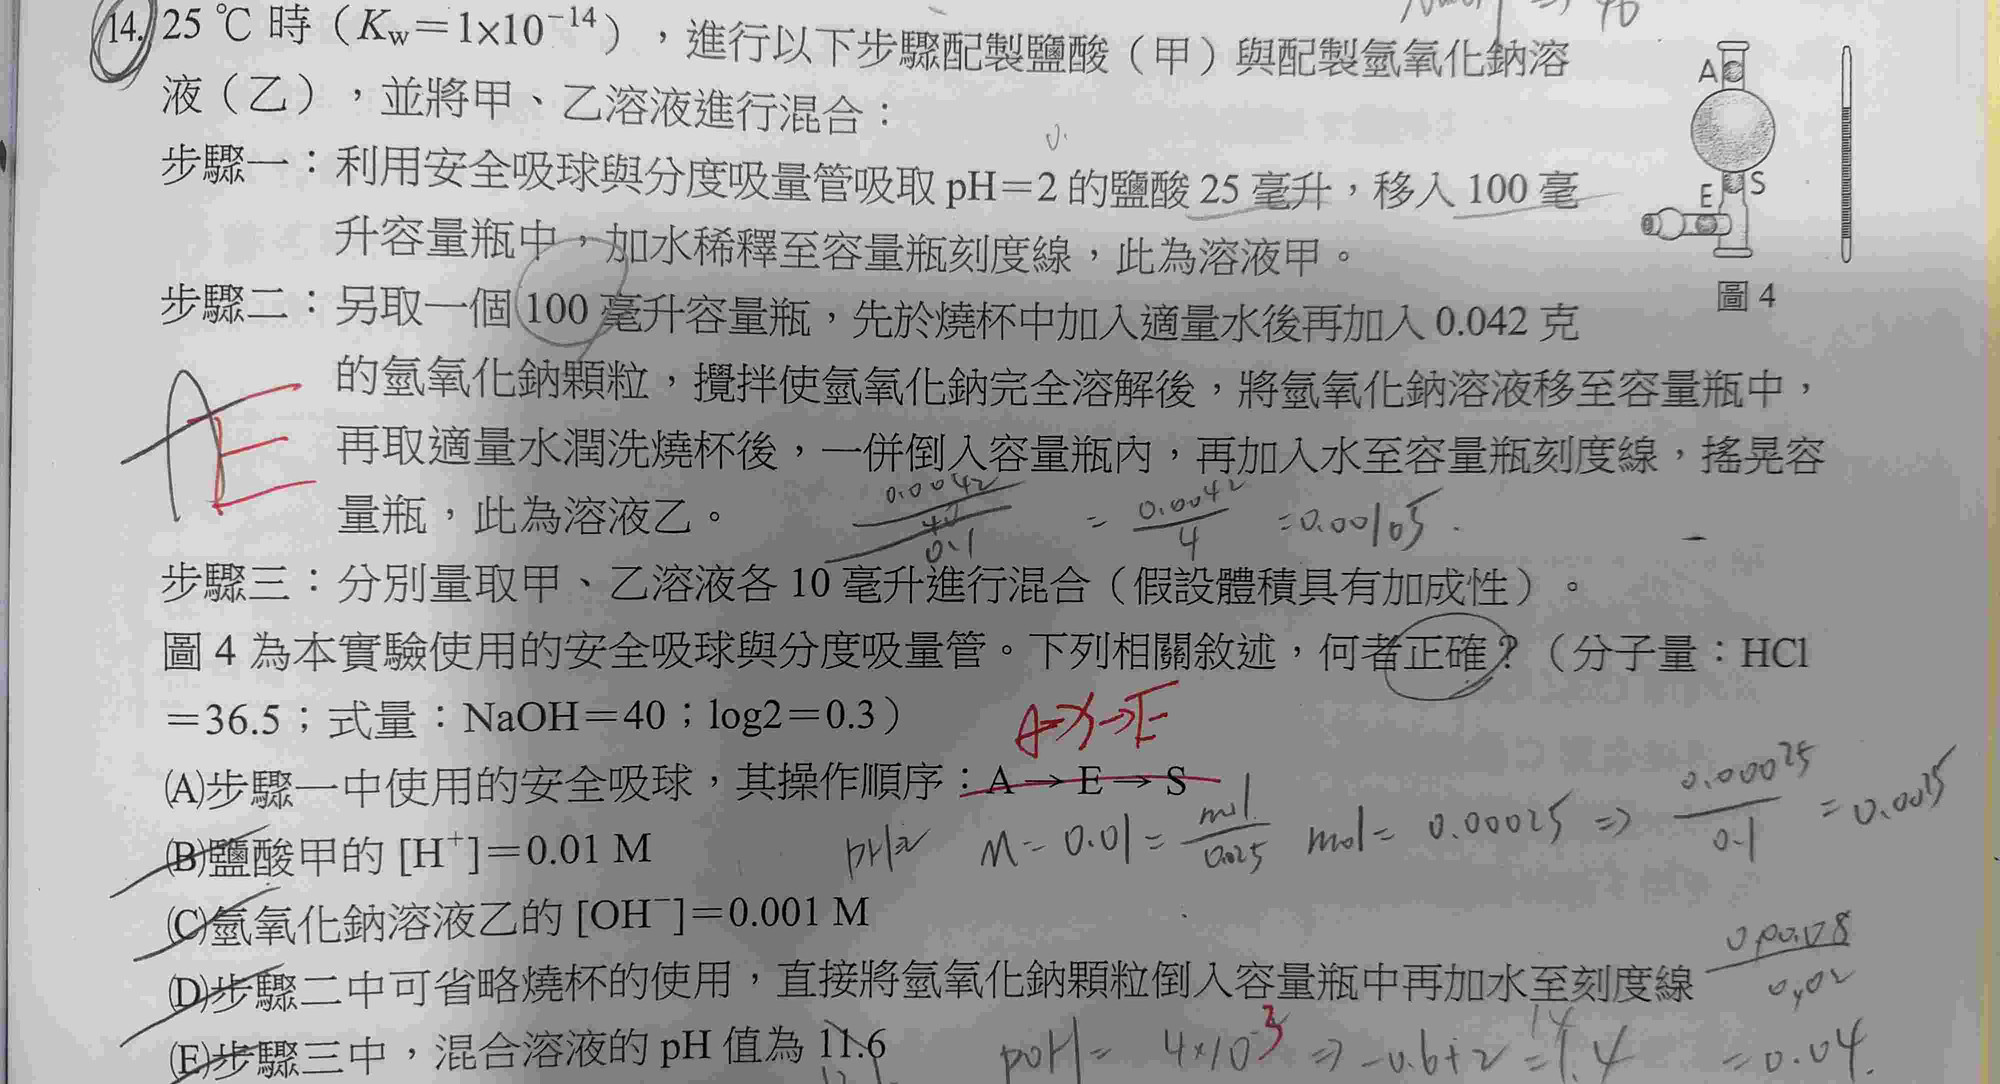 14. 25 ℃ 時（Kw＝1×10⁻¹⁴），進行以下步驟配製鹽酸（甲）與配製氫氧化鈉溶
液（乙），並將甲、乙溶液進行混合：
步驟一：利用安全吸球與分度吸量管吸取 pH＝2 的鹽酸 25 毫升，移入 100 毫
升容量瓶中，加水稀釋至容量瓶刻度線，此為溶液甲。
A
E S
圖 4
步驟二：另取一個 100 毫升容量瓶，先於燒杯中加入適量水後再加入 0.042 克
的氫氧化鈉顆粒，攪拌使氫氧化鈉完全溶解後，將氫氧化鈉溶液移至容量瓶中，
AE
再取適量水潤洗燒杯後，一併倒入容量瓶內，再加入水至容量瓶刻度線，搖晃容
量瓶，此為溶液乙。
0.0042/40/0.1 = 0.0042/4 = 0.00105
步驟三：分別量取甲、乙溶液各 10 毫升進行混合（假設體積具有加成性）。
圖 4 為本實驗使用的安全吸球與分度吸量管。下列相關敘述，何者正確？（分子量：HCl
＝36.5；式量：NaOH＝40；log2＝0.3）
A→S→E
(A)步驟一中使用的安全吸球，其操作順序：A → E → S
(B)鹽酸甲的 [H⁺]＝0.01 M
pH=2 M = 0.01 = mol/0.025 mol = 0.00025 ⇒ 0.00025/0.1 = 0.0025
(C)氫氧化鈉溶液乙的 [OH⁻]＝0.001 M
(D)步驟二中可省略燒杯的使用，直接將氫氧化鈉顆粒倒入容量瓶中再加水至刻度線
(E)步驟三中，混合溶液的 pH 值為 11.6
pOH = 4×10⁻³ ⇒ -0.6+2 = 1.4
= 0.04